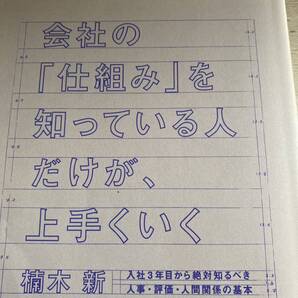 会社の
「仕組み」を
知っている人
だけが、
上手くいく
楠木 新
入社3年目から絶対知るべき
人事・評価・人間関係の基本